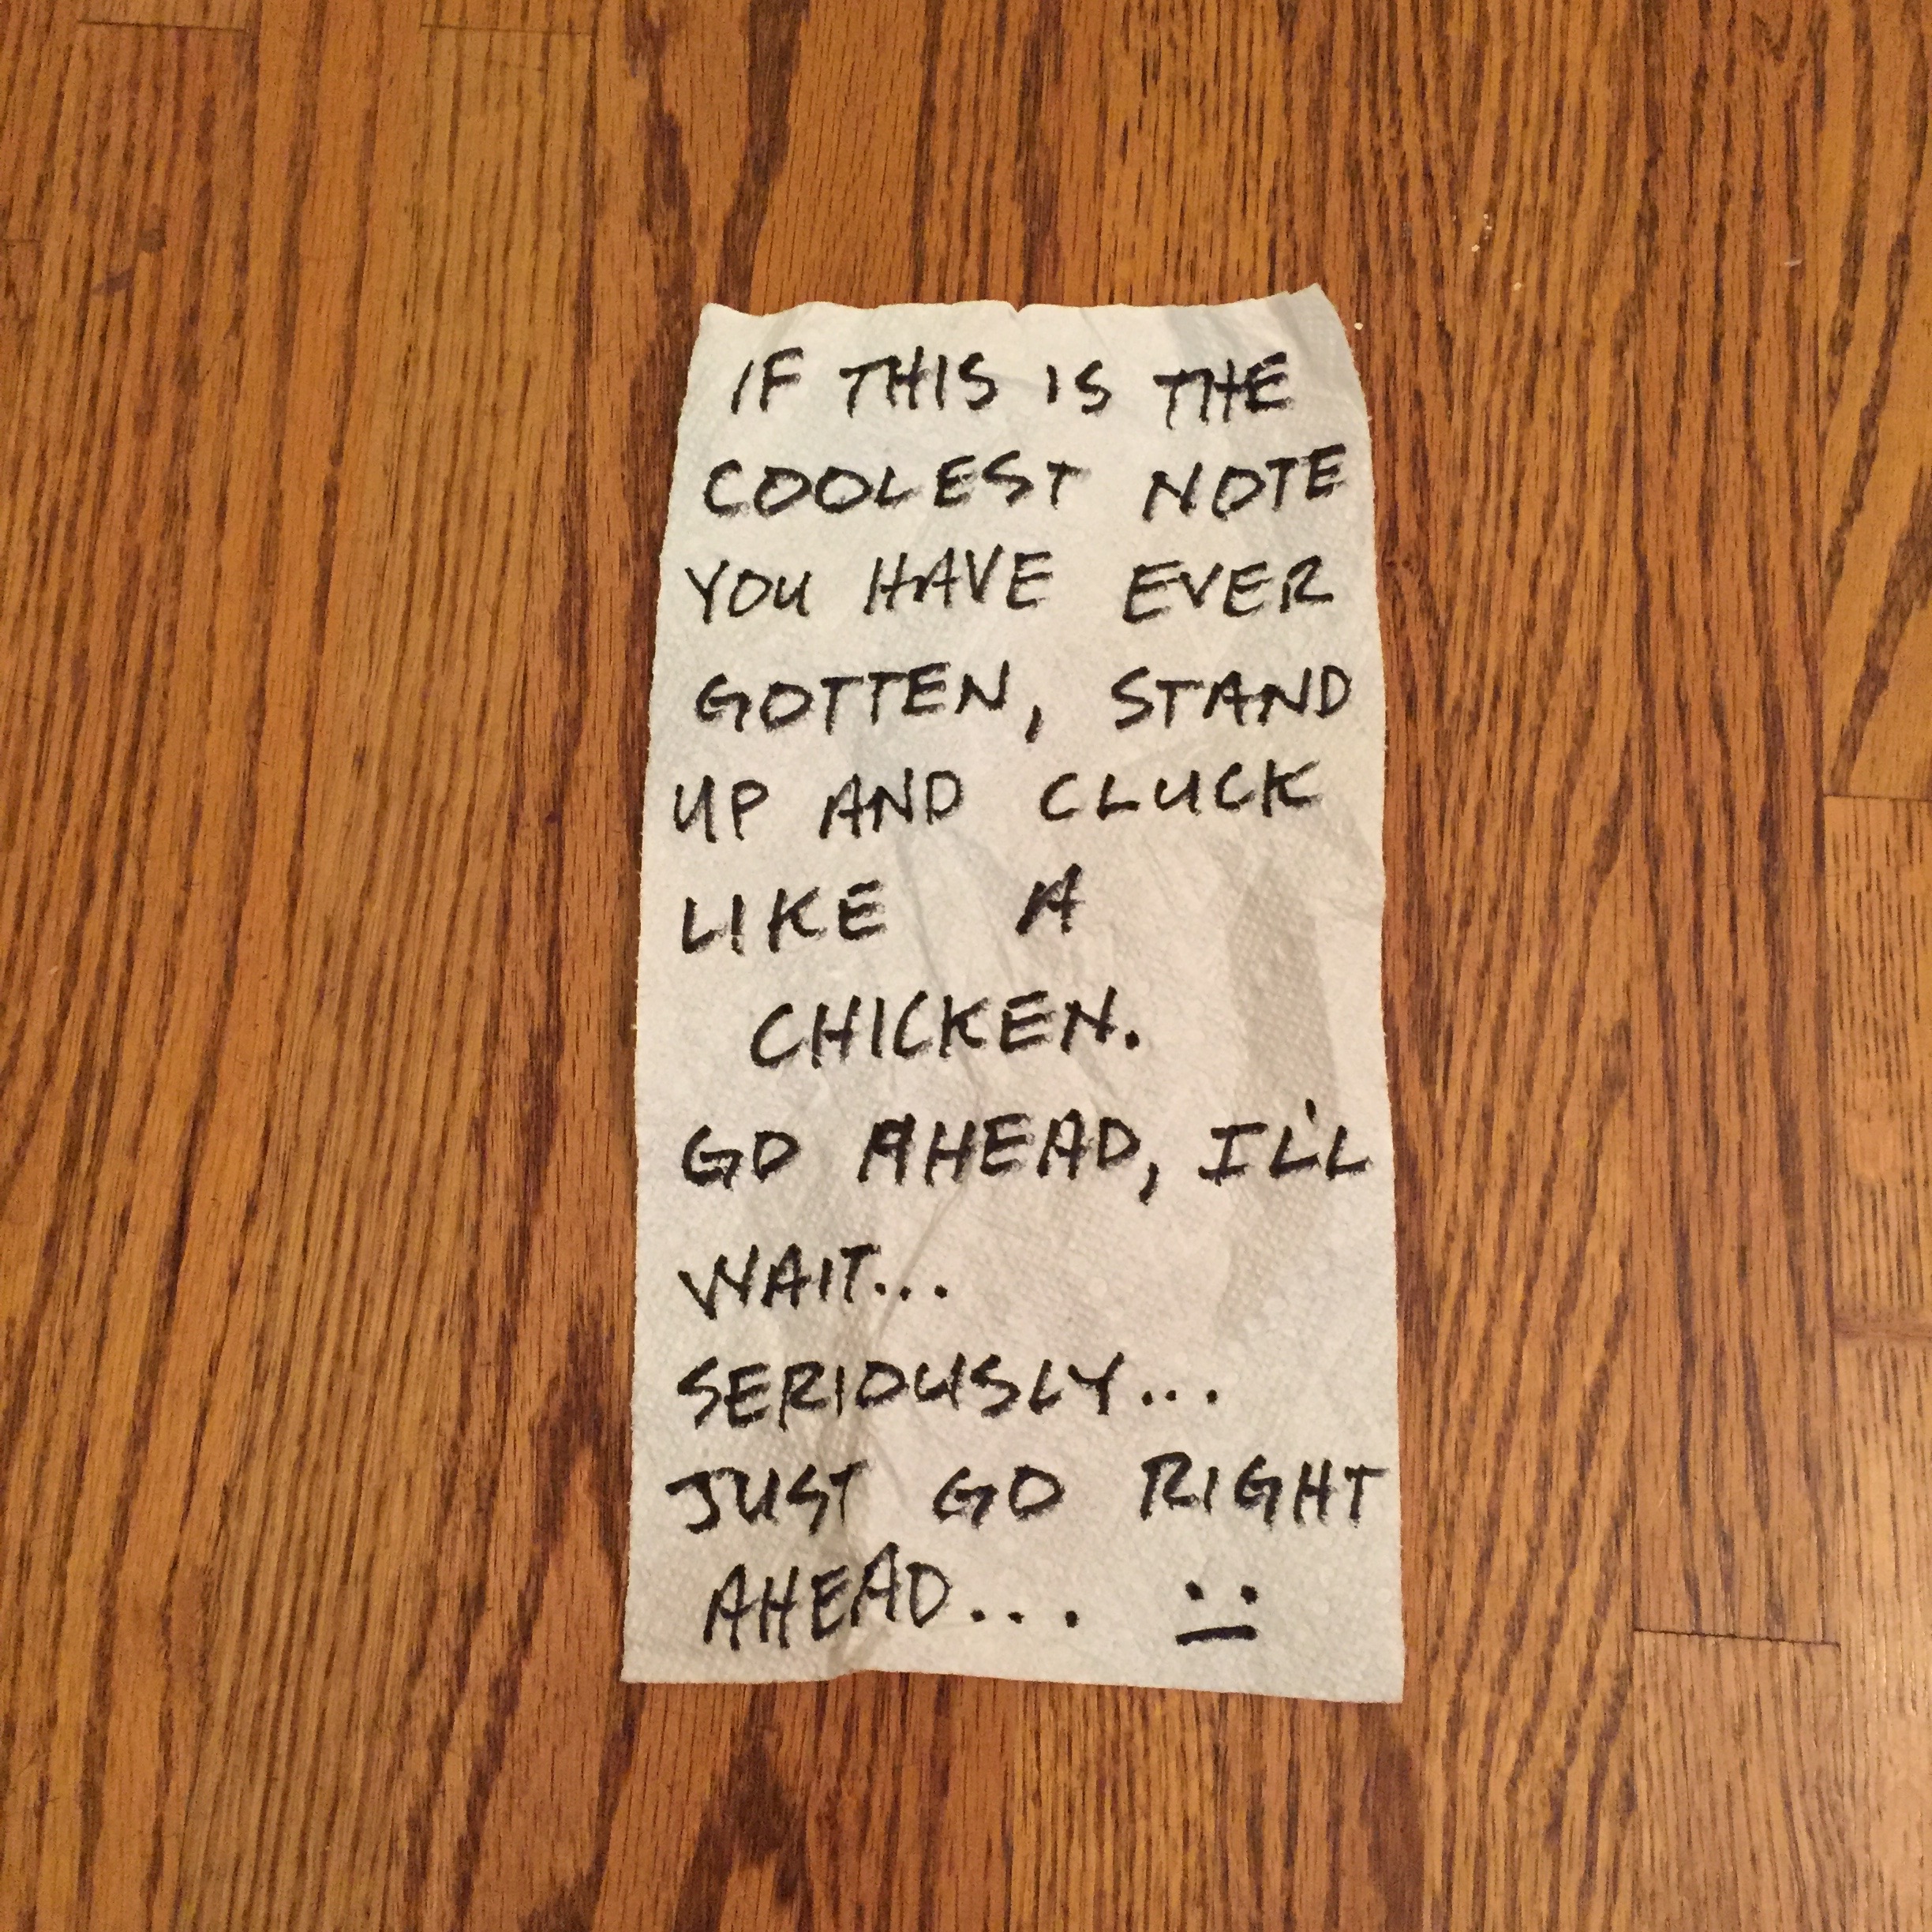 IF THIS IS THE
COOLEST NOTE
YOU HAVE EVER
GOTTEN, STAND
UP AND CLUCK
LIKE A
CHICKEN.
GO AHEAD, IL'L
WAIT...
SERIOUSLY...
JUST GO RIGHT
AHEAD...